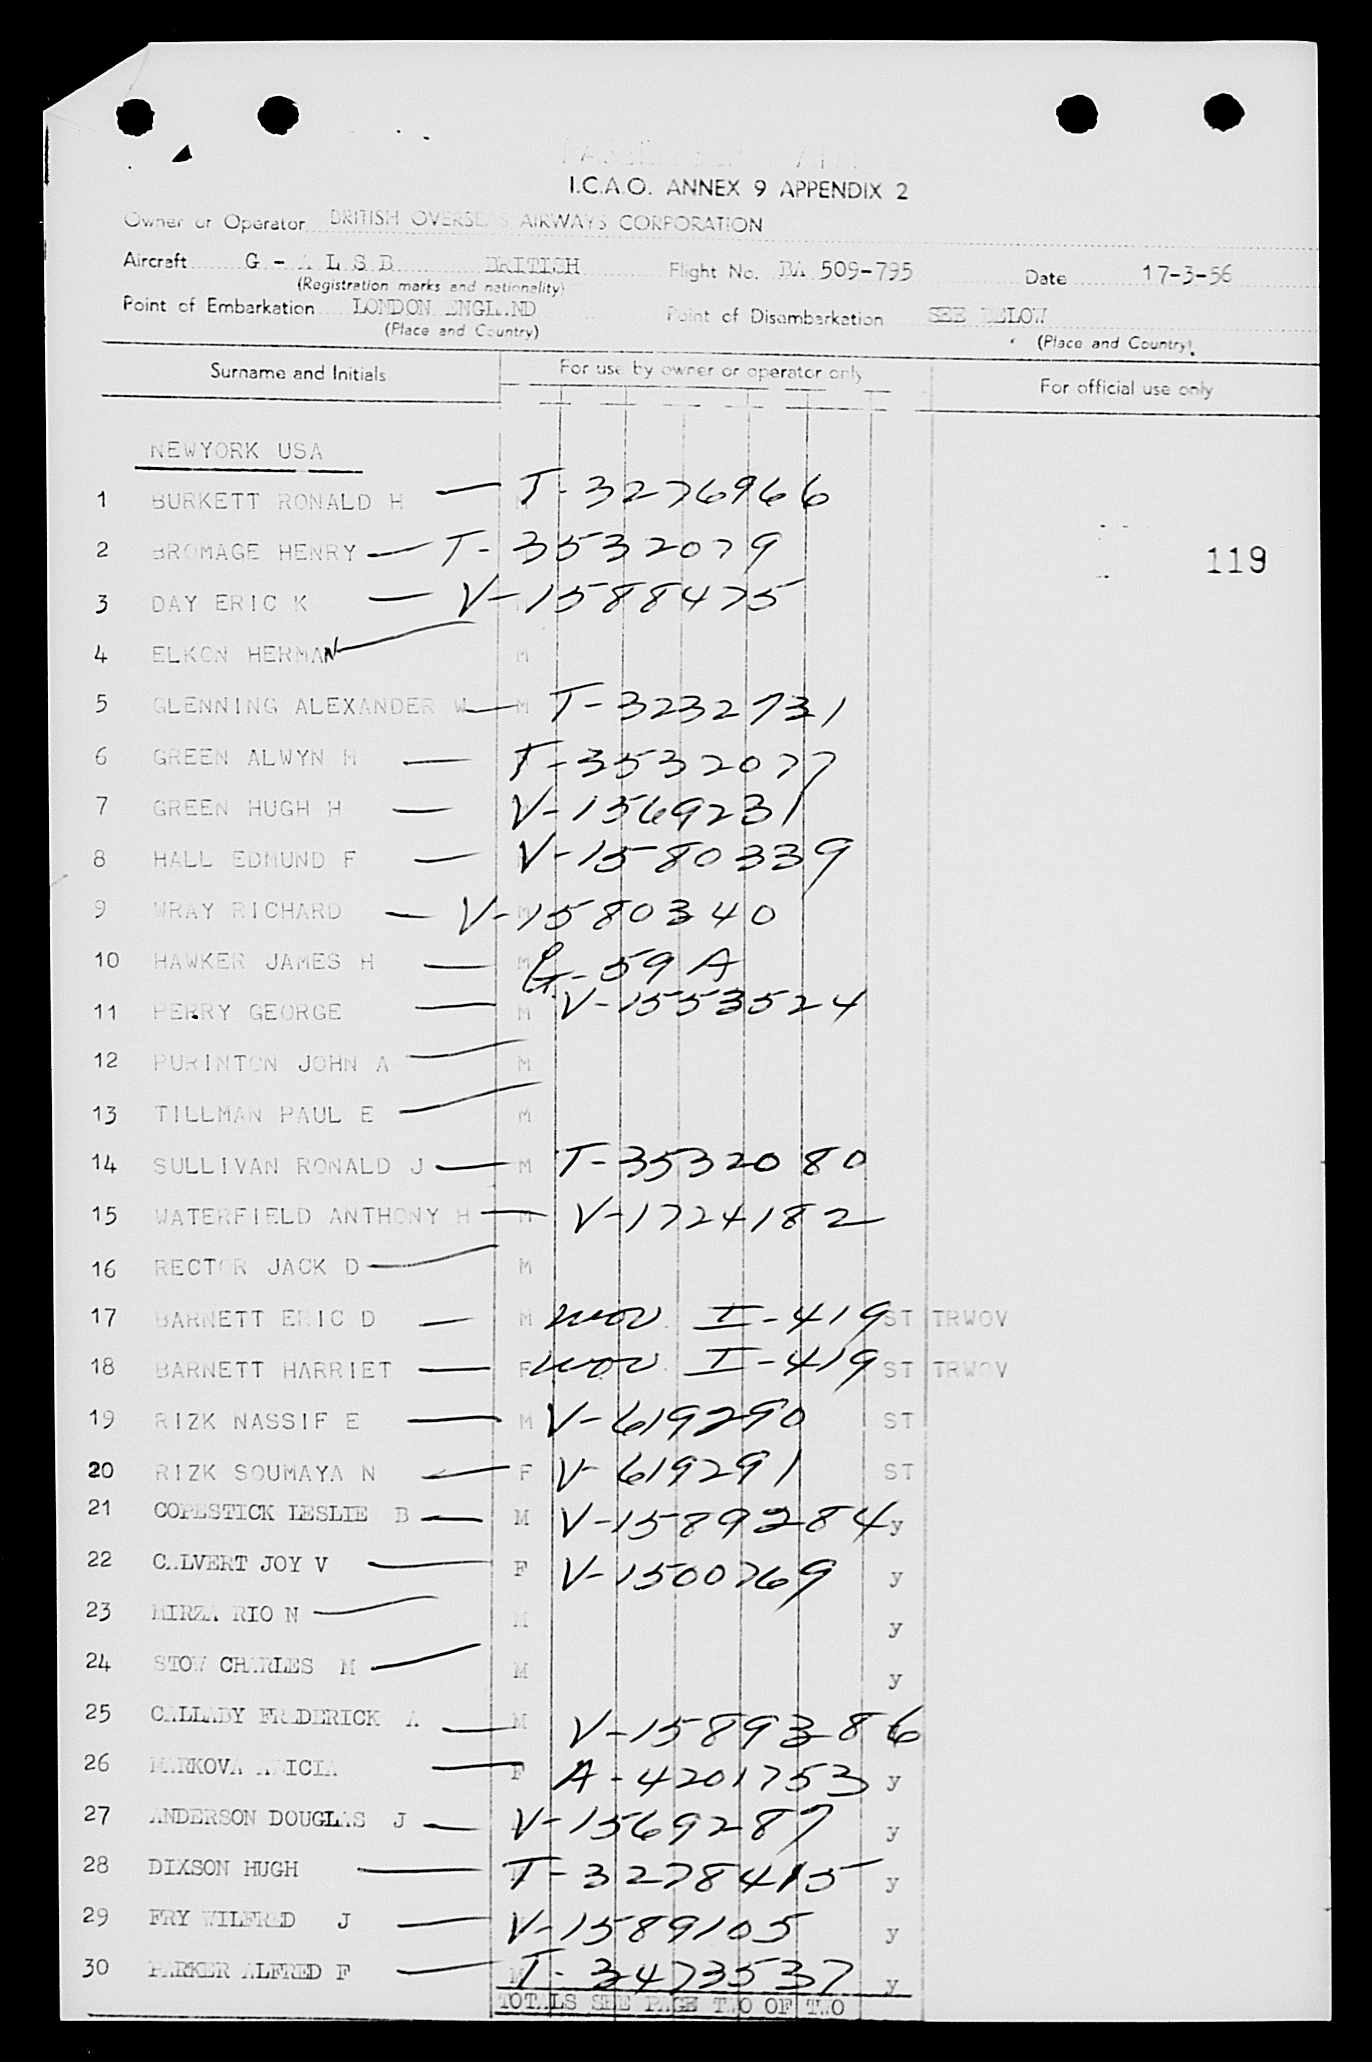 I.C.A.O. ANNEX 9 APPENDIX 2
Owner or Operator BRITISH OVERSEAS AIRWAYS CORPORATION
Aircraft G - A L S B BRITISH Flight No. BA 509-795 Date 17-3-56
(Registration marks and nationality)
Point of Embarkation LONDON ENGLAND Point of Disembarkation SEE BELOW
(Place and Country) (Place and Country)
Surname and Initials For use by owner or operator only For official use only
NEWYORK USA
1 BURKETT RONALD H M T-3276966
2 BROMAGE HENRY T-3532079
119
3 DAY ERIC K V-1588475
4 ELKON HERMAN M
5 GLENNING ALEXANDER W M T-3232731
6 GREEN ALWYN M T-3532077
7 GREEN HUGH H V-1569231
8 HALL EDMUND F V-1580339
9 WRAY RICHARD M V-1580340
10 HAWKER JAMES H M G-59A
11 PERRY GEORGE M V-1553524
12 PURINTON JOHN A M
13 TILLMAN PAUL E M
14 SULLIVAN RONALD J M T-3532080
15 WATERFIELD ANTHONY H M V-1724182
16 RECTOR JACK D M
17 BARNETT ERIC D M WOV. I-419 ST TRWOV
18 BARNETT HARRIET F WOV. I-419 ST TRWOV
19 RIZK NASSIF E M V-619290 ST
20 RIZK SOUMAYA N F V-619291 ST
21 COPESTICK LESLIE B M V-1589284 y
22 CALVERT JOY V F V-1500769 y
23 MIRZA RIO N M y
24 STOW CHARLES M M y
25 CALLABY FREDERICK A M V-1589386
26 MARKOVA ALICIA F A-4201753 y
27 ANDERSON DOUGLAS J V-1569287 y
28 DIXSON HUGH T-3278415 y
29 FRY WILFRED J V-1589105 y
30 PARKER ALFRED F M T-3473537 y
TOTALS SEE PAGE TWO OF TWO